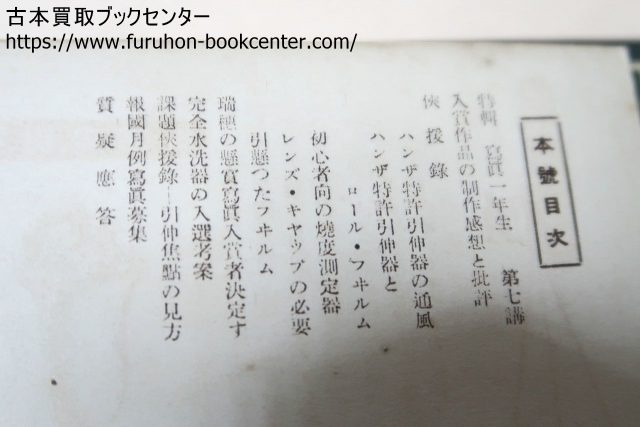 古本買取ブックセンター
https://www.furuhon-bookcenter.com/
本號目次
特輯 寫眞一年生 第七講
入賞作品の制作感想と批評
俠援錄
ハンザ特許引伸器の通風
ハンザ特許引伸器と
ロール・フヰルム
初心者向の燒度測定器
レンズ・キヤツプの必要
引懸つたフヰルム
瑞穗の懸賞寫眞入賞者決定す
完全水洗器の入選考案
課題俠援錄―引伸焦點の見方
報國月例寫眞募集
質疑應答